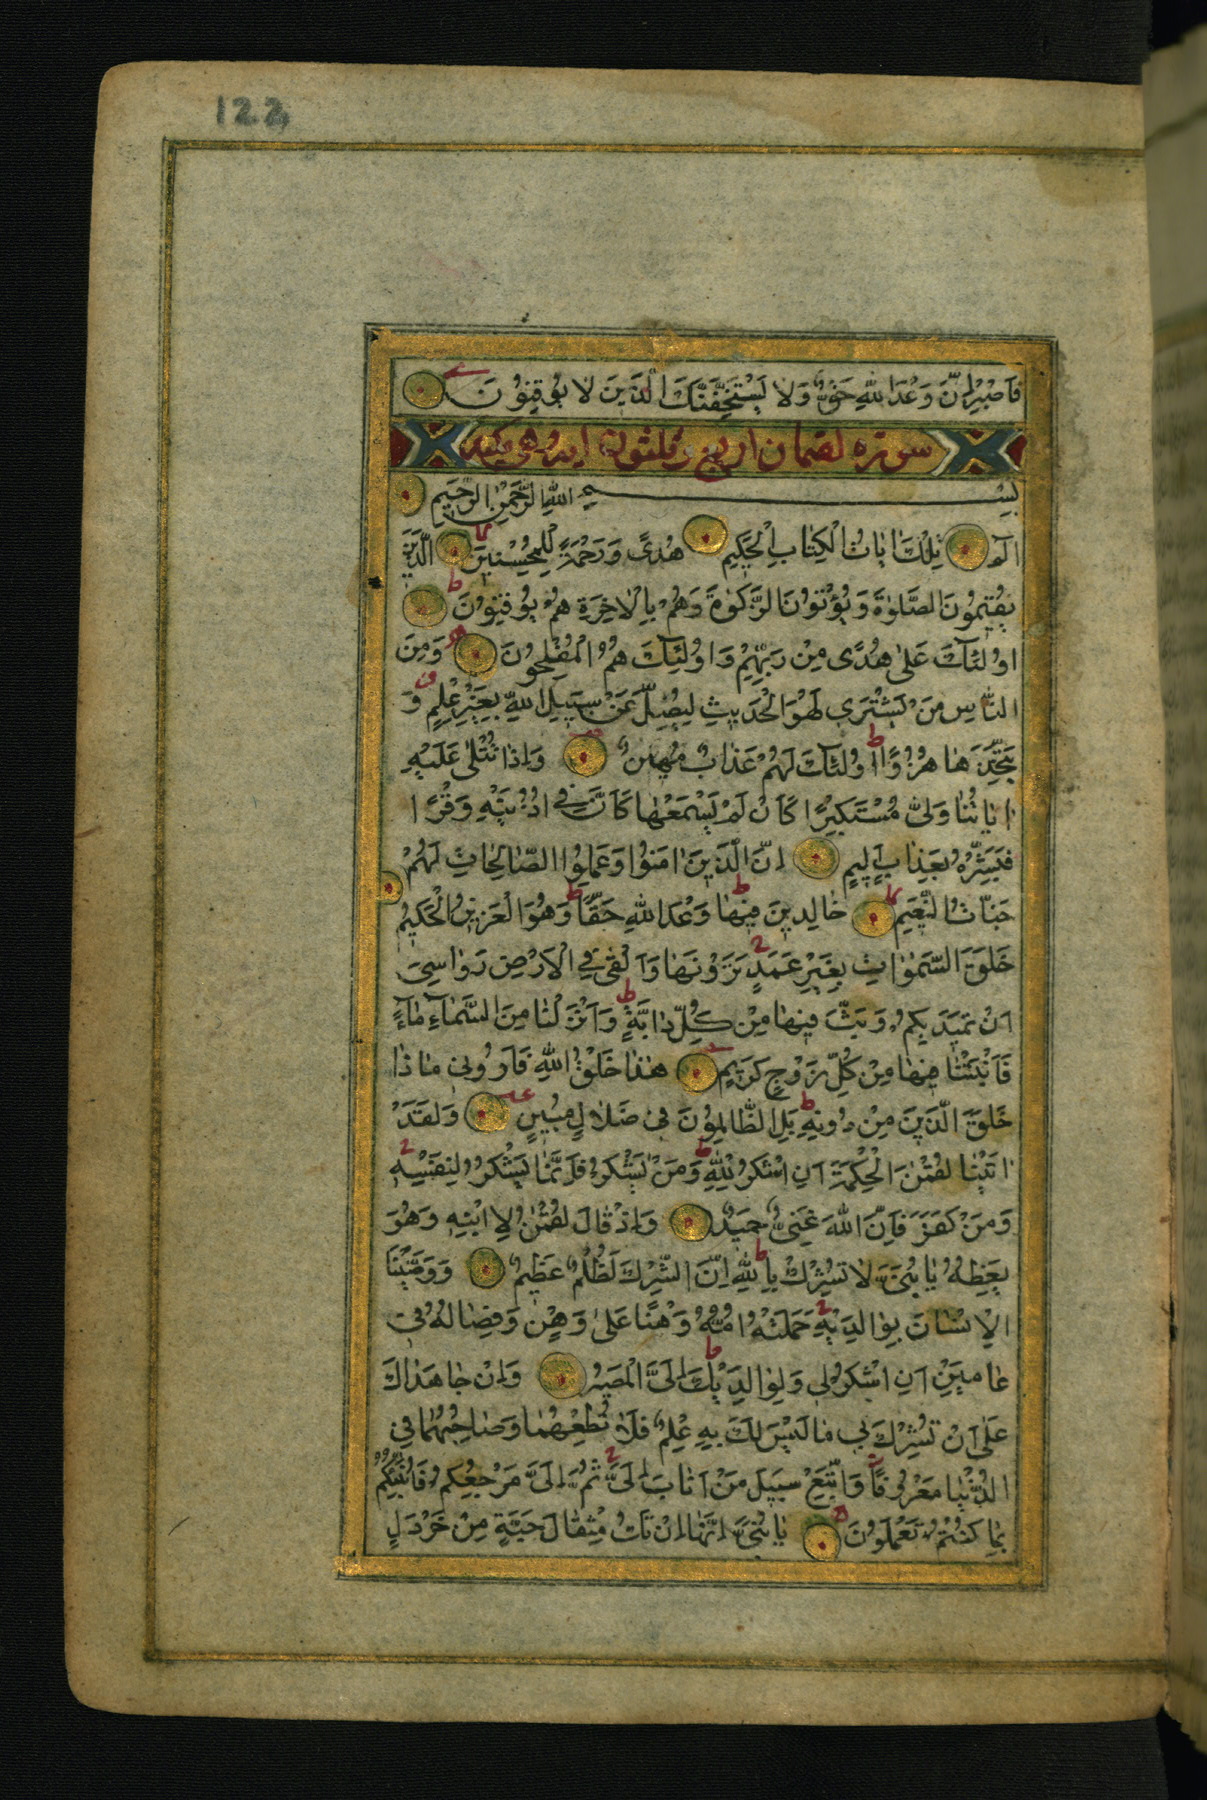 122
فَاصْبِرْ اِنَّ وَعْدَ اللّٰهِ حَقٌّ وَلَا يَسْتَخِفَّنَّكَ الَّذِينَ لَا يُوقِنُونَ
سورة لقمان اربع وثلثون اية وهي مكية
بِسْمِ اللّٰهِ الرَّحْمٰنِ الرَّحِيمِ
الٓمٓ تِلْكَ اٰيَاتُ الْكِتَابِ الْحَكِيمِ هُدًى وَرَحْمَةً لِلْمُحْسِنِينَ الَّذِينَ
يُقِيمُونَ الصَّلٰوةَ وَيُؤْتُونَ الزَّكٰوةَ وَهُمْ بِالْاٰخِرَةِ هُمْ يُوقِنُونَ
اُولٰٓئِكَ عَلٰى هُدًى مِنْ رَبِّهِمْ وَاُولٰٓئِكَ هُمُ الْمُفْلِحُونَ وَمِنَ
النَّاسِ مَنْ يَشْتَرِي لَهْوَ الْحَدِيثِ لِيُضِلَّ عَنْ سَبِيلِ اللّٰهِ بِغَيْرِ عِلْمٍ وَ
يَتَّخِذَهَا هُزُوًا اُولٰٓئِكَ لَهُمْ عَذَابٌ مُهِينٌ وَاِذَا تُتْلٰى عَلَيْهِ
اٰيَاتُنَا وَلّٰى مُسْتَكْبِرًا كَاَنْ لَمْ يَسْمَعْهَا كَاَنَّ فِي اُذُنَيْهِ وَقْرًا
فَبَشِّرْهُ بِعَذَابٍ اَلِيمٍ اِنَّ الَّذِينَ اٰمَنُوا وَعَمِلُوا الصَّالِحَاتِ لَهُمْ
جَنَّاتُ النَّعِيمِ خَالِدِينَ فِيهَا وَعْدَ اللّٰهِ حَقًّا وَهُوَ الْعَزِيزُ الْحَكِيمُ
خَلَقَ السَّمٰوَاتِ بِغَيْرِ عَمَدٍ تَرَوْنَهَا وَاَلْقٰى فِي الْاَرْضِ رَوَاسِيَ
اَنْ تَمِيدَ بِكُمْ وَبَثَّ فِيهَا مِنْ كُلِّ دَابَّةٍ وَاَنْزَلْنَا مِنَ السَّمَآءِ مَآءً
فَاَنْبَتْنَا فِيهَا مِنْ كُلِّ زَوْجٍ كَرِيمٍ هٰذَا خَلْقُ اللّٰهِ فَاَرُونِي مَاذَا
خَلَقَ الَّذِينَ مِنْ دُونِهِ بَلِ الظَّالِمُونَ فِي ضَلَالٍ مُبِينٍ وَلَقَدْ
اٰتَيْنَا لُقْمٰنَ الْحِكْمَةَ اَنِ اشْكُرْ لِلّٰهِ وَمَنْ يَشْكُرْ فَاِنَّمَا يَشْكُرُ لِنَفْسِهِ
وَمَنْ كَفَرَ فَاِنَّ اللّٰهَ غَنِيٌّ حَمِيدٌ وَاِذْ قَالَ لُقْمٰنُ لِابْنِهِ وَهُوَ
يَعِظُهُ يَا بُنَيَّ لَا تُشْرِكْ بِاللّٰهِ اِنَّ الشِّرْكَ لَظُلْمٌ عَظِيمٌ وَوَصَّيْنَا
الْاِنْسَانَ بِوَالِدَيْهِ حَمَلَتْهُ اُمُّهُ وَهْنًا عَلٰى وَهْنٍ وَفِصَالُهُ فِي
عَامَيْنِ اَنِ اشْكُرْ لِي وَلِوَالِدَيْكَ اِلَيَّ الْمَصِيرُ وَاِنْ جَاهَدَاكَ
عَلٰى اَنْ تُشْرِكَ بِي مَا لَيْسَ لَكَ بِهِ عِلْمٌ فَلَا تُطِعْهُمَا وَصَاحِبْهُمَا فِي
الدُّنْيَا مَعْرُوفًا وَاتَّبِعْ سَبِيلَ مَنْ اَنَابَ اِلَيَّ ثُمَّ اِلَيَّ مَرْجِعُكُمْ فَاُنَبِّئُكُمْ
بِمَا كُنْتُمْ تَعْمَلُونَ يَا بُنَيَّ اِنَّهَا اِنْ تَكُ مِثْقَالَ حَبَّةٍ مِنْ خَرْدَلٍ